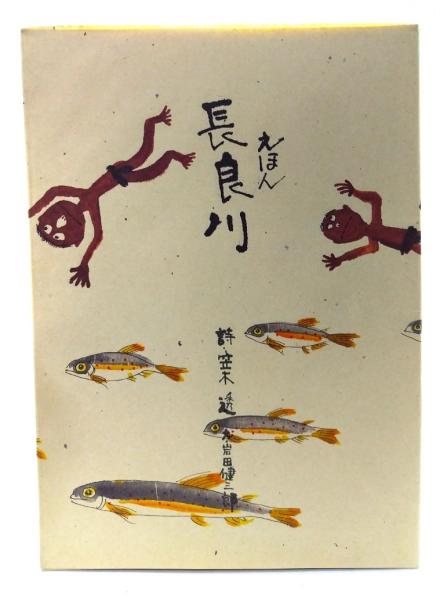 えほん
長良川
詩・笠木透
え・岩田健三郎